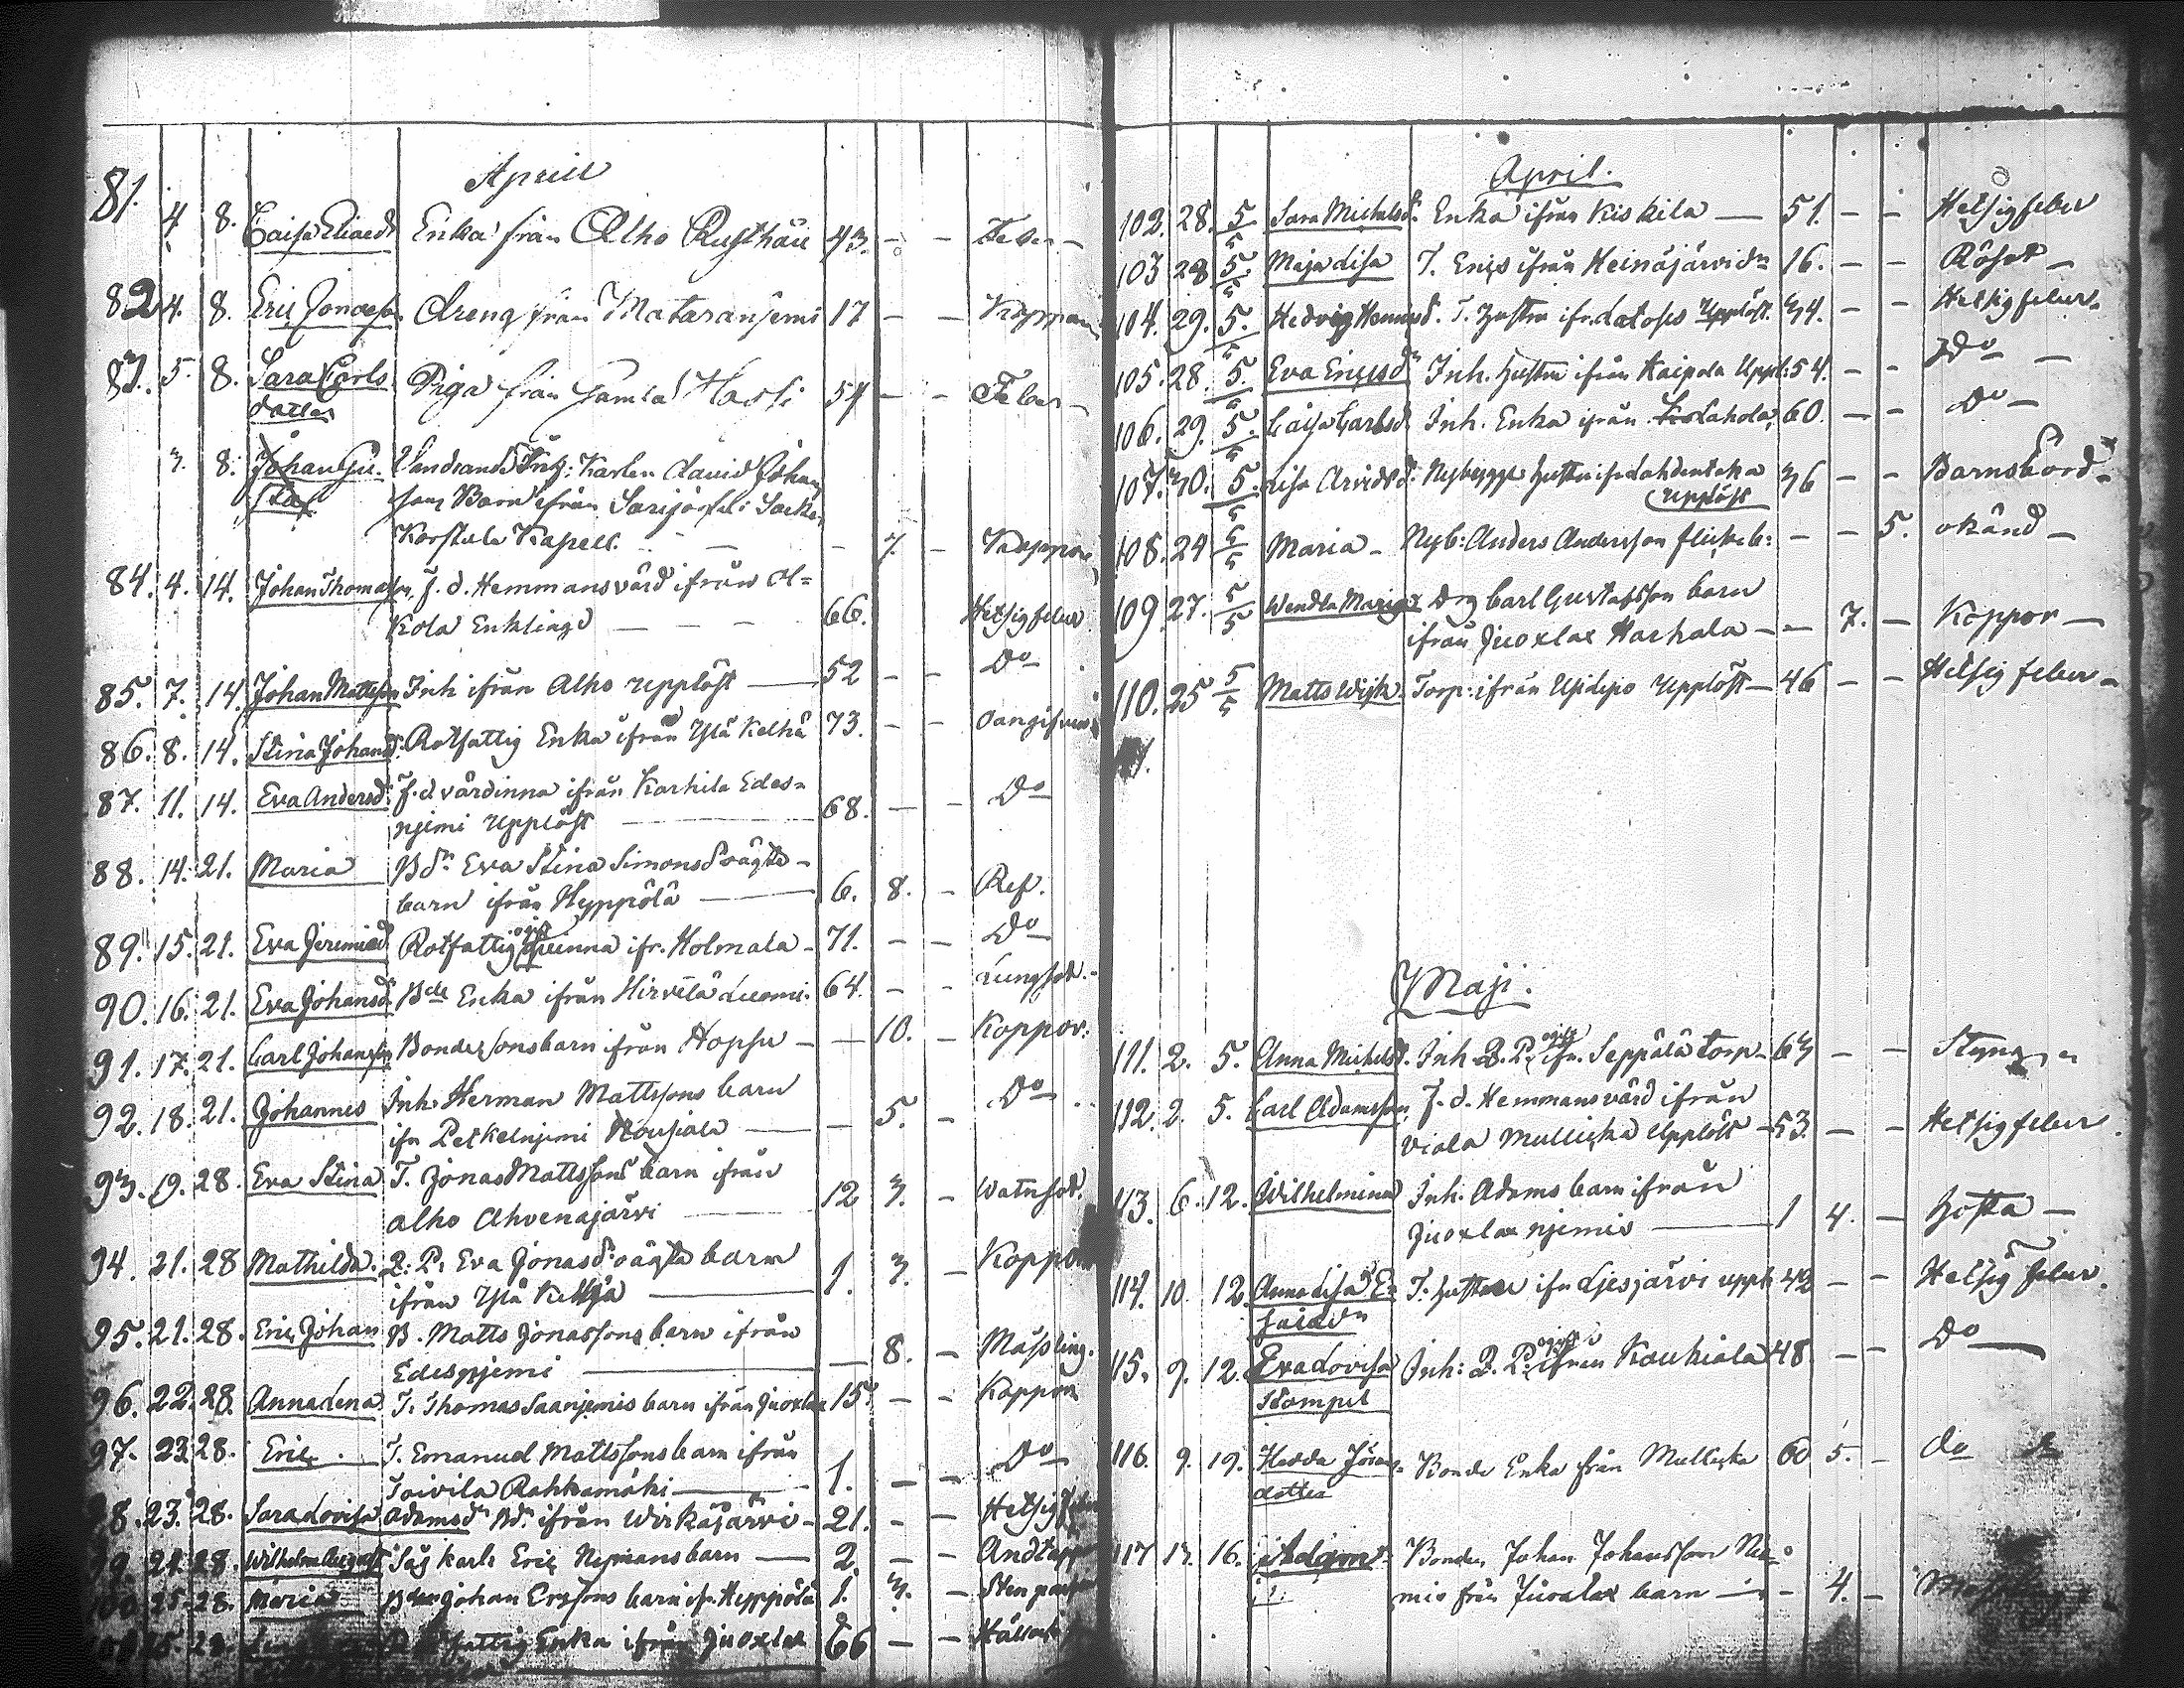 Aprill
81. 4. 8. Caisa Eliaedr Enka från Alho Rusthåll 43. – – Feber –
82. 4. 8. Eric Jonasson Dreng från Mataraniemi 17 – – Koppor
83. 5. 8. Sara Carls Piga från Gamla Hassi 54 – – Feber –
dotter
3. 8. Johan Gu- Vandrande Inh: Karlen David Johan
staf sons Barn ifrån Sarijärfvi Socken
Korstula Kapell – – 7. – Koppor
84. 4. 14. Johan Thomasson, f. d. Hemmansvärd ifrån Ol=
Kola Enklingd – – – 66. Hetsig feber
85. 7. 14. Johan Mattsson Inh ifrån Alho Upplöst — 52 – – Do
86. 8. 14. Stina Johansd: Rotfattig Enka ifrån Ylä Kelhä 73. – –
87. 11. 14. Eva Andersd: f. d. värdinna ifrån Karhila Edes=
njemi Upplöst — 68. – – Do
88. 14. 21. Maria Bdr Eva Stina Simonsd: oägta –
barn ifrån Hyppölä — 6. 8. – Ref.
89. 15. 21. Eva Jeremiæd Rotfattig ogift qvinna ifr. Holmala – 71. – – Do
90. 16. 21. Eva Johansd: Bde Enka ifrån Hirvelä Luomi. 64. – – Lungsot. –
91. 17. 21. Carl Johansson Bondesonsbarn ifrån Hopsu – — 10. – Koppor.
92. 18. 21. Johannes Inh: Herman Mattssons barn
ifn Petkelnjemi Rousiala — – 5. – Do
93. 19. 28. Eva Stina T. Jonas Mattsons barn ifrån
Alho Ahvenajärvi — 12 3. – Watusot.
94. 21. 28 Mathilda. Q: P: Eva Jonasd: oägta barn
ifrån Ylä Kelhjä — 1. 3. – Koppor
95. 21. 28. Eric Johan B. Matts Jonassons barn ifrån
Edesnjemi — – 8. – Mäßling.
96. 22. 28. Anna Lena T. Thomas Saanjemis barn ifrån Juoxlax 15. – – Koppor
97. 23 28. Eric. T. Emanuel Mattssons barn ifrån
Toivila Rahkamäki — 1. – – Do
98. 23. 28. Sara Lovisa Adamsdr Bdr ifrån Wirkäjärvi – 21. – – Hetsig feber
99. 24. 28. Wilhelm August Såg karls Eric Nymans barn — 2. – – Andtäppa
100. 25. 28. Maria Bden Johan Ersons barn ifr. Hyppölä 1. 3. – Sten passion
101. 25. 28. fattig Enka ifrån Juoxlax 66 – –
April.
102. 28. 5/5 Sara Michelsdr. Enka ifrån Kiskila — 51. – – Hetsigfeber
103 28 5/5 Maja Lisa T. Erics ifrån Heinäjärvi dr 16. – – Rösot –
104. 29. 5/5 Hedvig Heniksd. T. Hustru ifr. Latoss Upplöst. 34. – – Hetsigfeber.
105. 28. 5/5 Eva Ericsdr Inh. Hustru ifrån Kaipola Uppl: 54. – – Do –
106. 29. 5/5 Caisa Carlsd. Inh. Enka ifrån Lahola, 60. – – Do –
107. 30. 5/5 Lisa Arvidsd: Nybygge Hustru ifr Lahdentaka 36 – – Barnsbörd –
Upplöst
108. 24 5/5 Maria – Nyb: Anders Andersson flickeb: – – 5. okänd –
109 27. 5/5 Wendla Maria Drg Carl Gustafsson barn
ifrån Juoxlax Harhala – – 7. – Koppor –
110. 25 5/5 Matts Wijk. Torp: ifrån Upplöst – 46 – – Hetsig feber –
Maji.
111. 2. 5. Anna Michelsd. Inh. Q. P. ogift ifn. Seppälä torp – 63 – – Styng
112. 2. 5. Carl Adamsson, F. d. Hemmansvärd ifrån
Viala Mulliska Upplöst – 53. – – Hetsigfeber.
113. 6. 12. Wilhelmina Inh. Adams barn ifrån
Juoxlax njemis — 1 4. – Hosta –
114. 10. 12. Anna Lisa E- T. Hustru ifn Ljesjärvi uppl: 43 – – Hetsig feber.
saiædr
115. 9. 12. Eva Lovisa Inh: Q. P. ogift ifrån Kauhiala 48 – – Do
Stompel
116. 9. 19. Hedda Jöran- Bonde Enka från Mulliska 60 5. – do
dotter
117 13. 16. Adam Bonden Johan Johansson Nie-
mis från Juoxlax barn – – 4. –